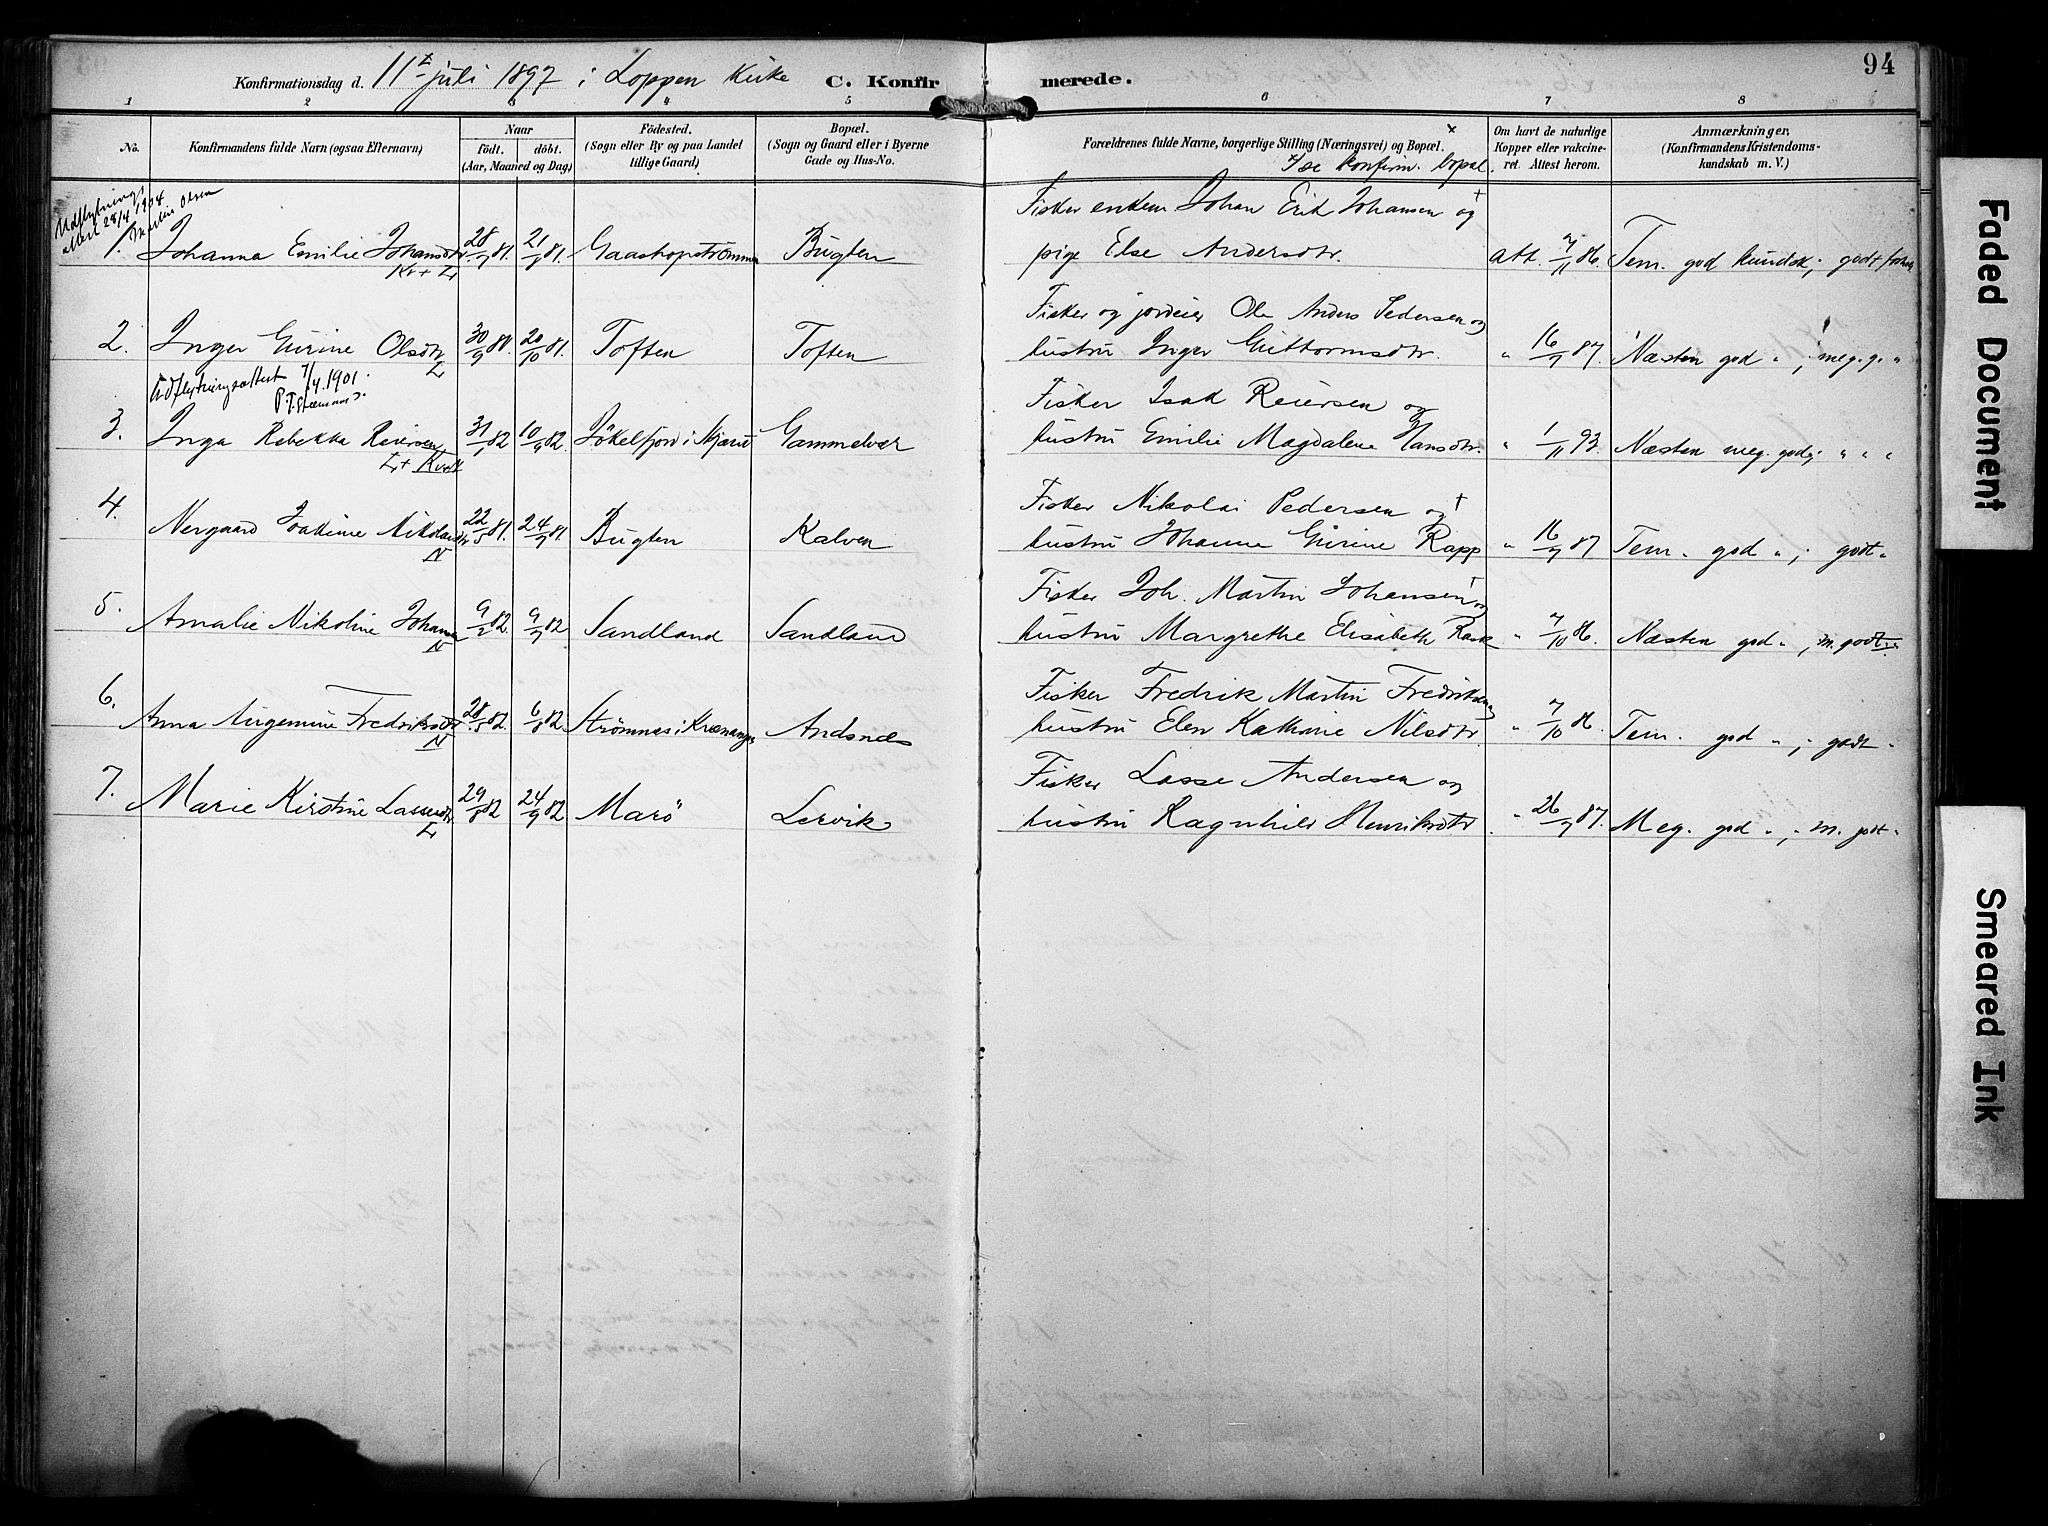 94
Konfirmationsdag d. 11te juli 1897 i Loppen Kirke C. Konfirmerede.
1 2 3 4 5 6 7 8
No.
Konfirmandens fulde Navn (ogsaa Efternavn)
Naar
født. døbt.
(Aar, Maaned og Dag)
Födested.
(Sogn eller By og paa Landet
tillige Gaard)
Bopæl.
(Sogn og Gaard eller i Byerne
Gade og Hus-No.
Forældrenes fulde Navne, borgerlige Stilling (Næringsvei) og Bopæl. x
x se konfirm. bopæl.
Om havt de naturlige
Kopper eller vakcine-
ret. Attest herom.
Anmærkninger.
(Konfirmandens Kristendoms-
kundskab m. V.)
Udflytnings
attest 28/4 1904
Malin Olsen
Fisker enkem. Johan Erik Johansen + og
1. Johanna Emilie Johansdtr 28/7 81. 21/8 81. Gaashopströmmen Bugten pige Else Andersdtr. att. 7/11 86. Tem. god kundsk.; godt forh.
Fisker og jordeier Ole Anders Pedersen og
2. Inger Gurine Olsdtr 30/9 81. 20/10 81. Toften Toften hustru Inger Guttormsdtr. " 16/7 87. Næsten god " ; meg. g. "
L
Udflytningsattest 7/4. 1901.
Fisker Isak Reiersen og
3. Inga Rebekka Reiersen 31/1 82 10/4 82. Jökelfjord i Skjervö Gammelvær hustru Emilie Magdalene Hansdtr. " 1/11 93. Næsten meg. god; " " "
L + Kvæk
Fisker Nikolai Pedersen og +
4. Nergaard Joakime Nikolaidtr 22/5 81. 24/7 81. Bugten Kalven hustru Johanne Gurine Rapp " 16/7 87 Tem. god " ; godt "
N
Fisker Joh. Martin Johansen + og
5. Amalie Nikoline Johansen 9/2 82. 9/7 82 Sandland Sandland hustru Margrethe Elisabeth Rask " 7/10 86. Næsten god " ; m. godt "
N
Fisker Fredrik Martin Fredriksen og
6. Anna Augemine Fredriksdtr 28/5 82. 6/8 82. Strømnæs i Kvænangen Andsnæs hustru Elen Kathrine Nilsdtr. " 7/10 86. Tem. god " ; godt "
N
Fisker Lasse Andersen og
7. Marie Kirstine Lassedtr 29/8 82 24/9 82 Marö Lervik hustru Ragnhild Henriksdtr " 26/7 87. Meg. god " ; m. godt "
L
Faded Document
Smeared Ink